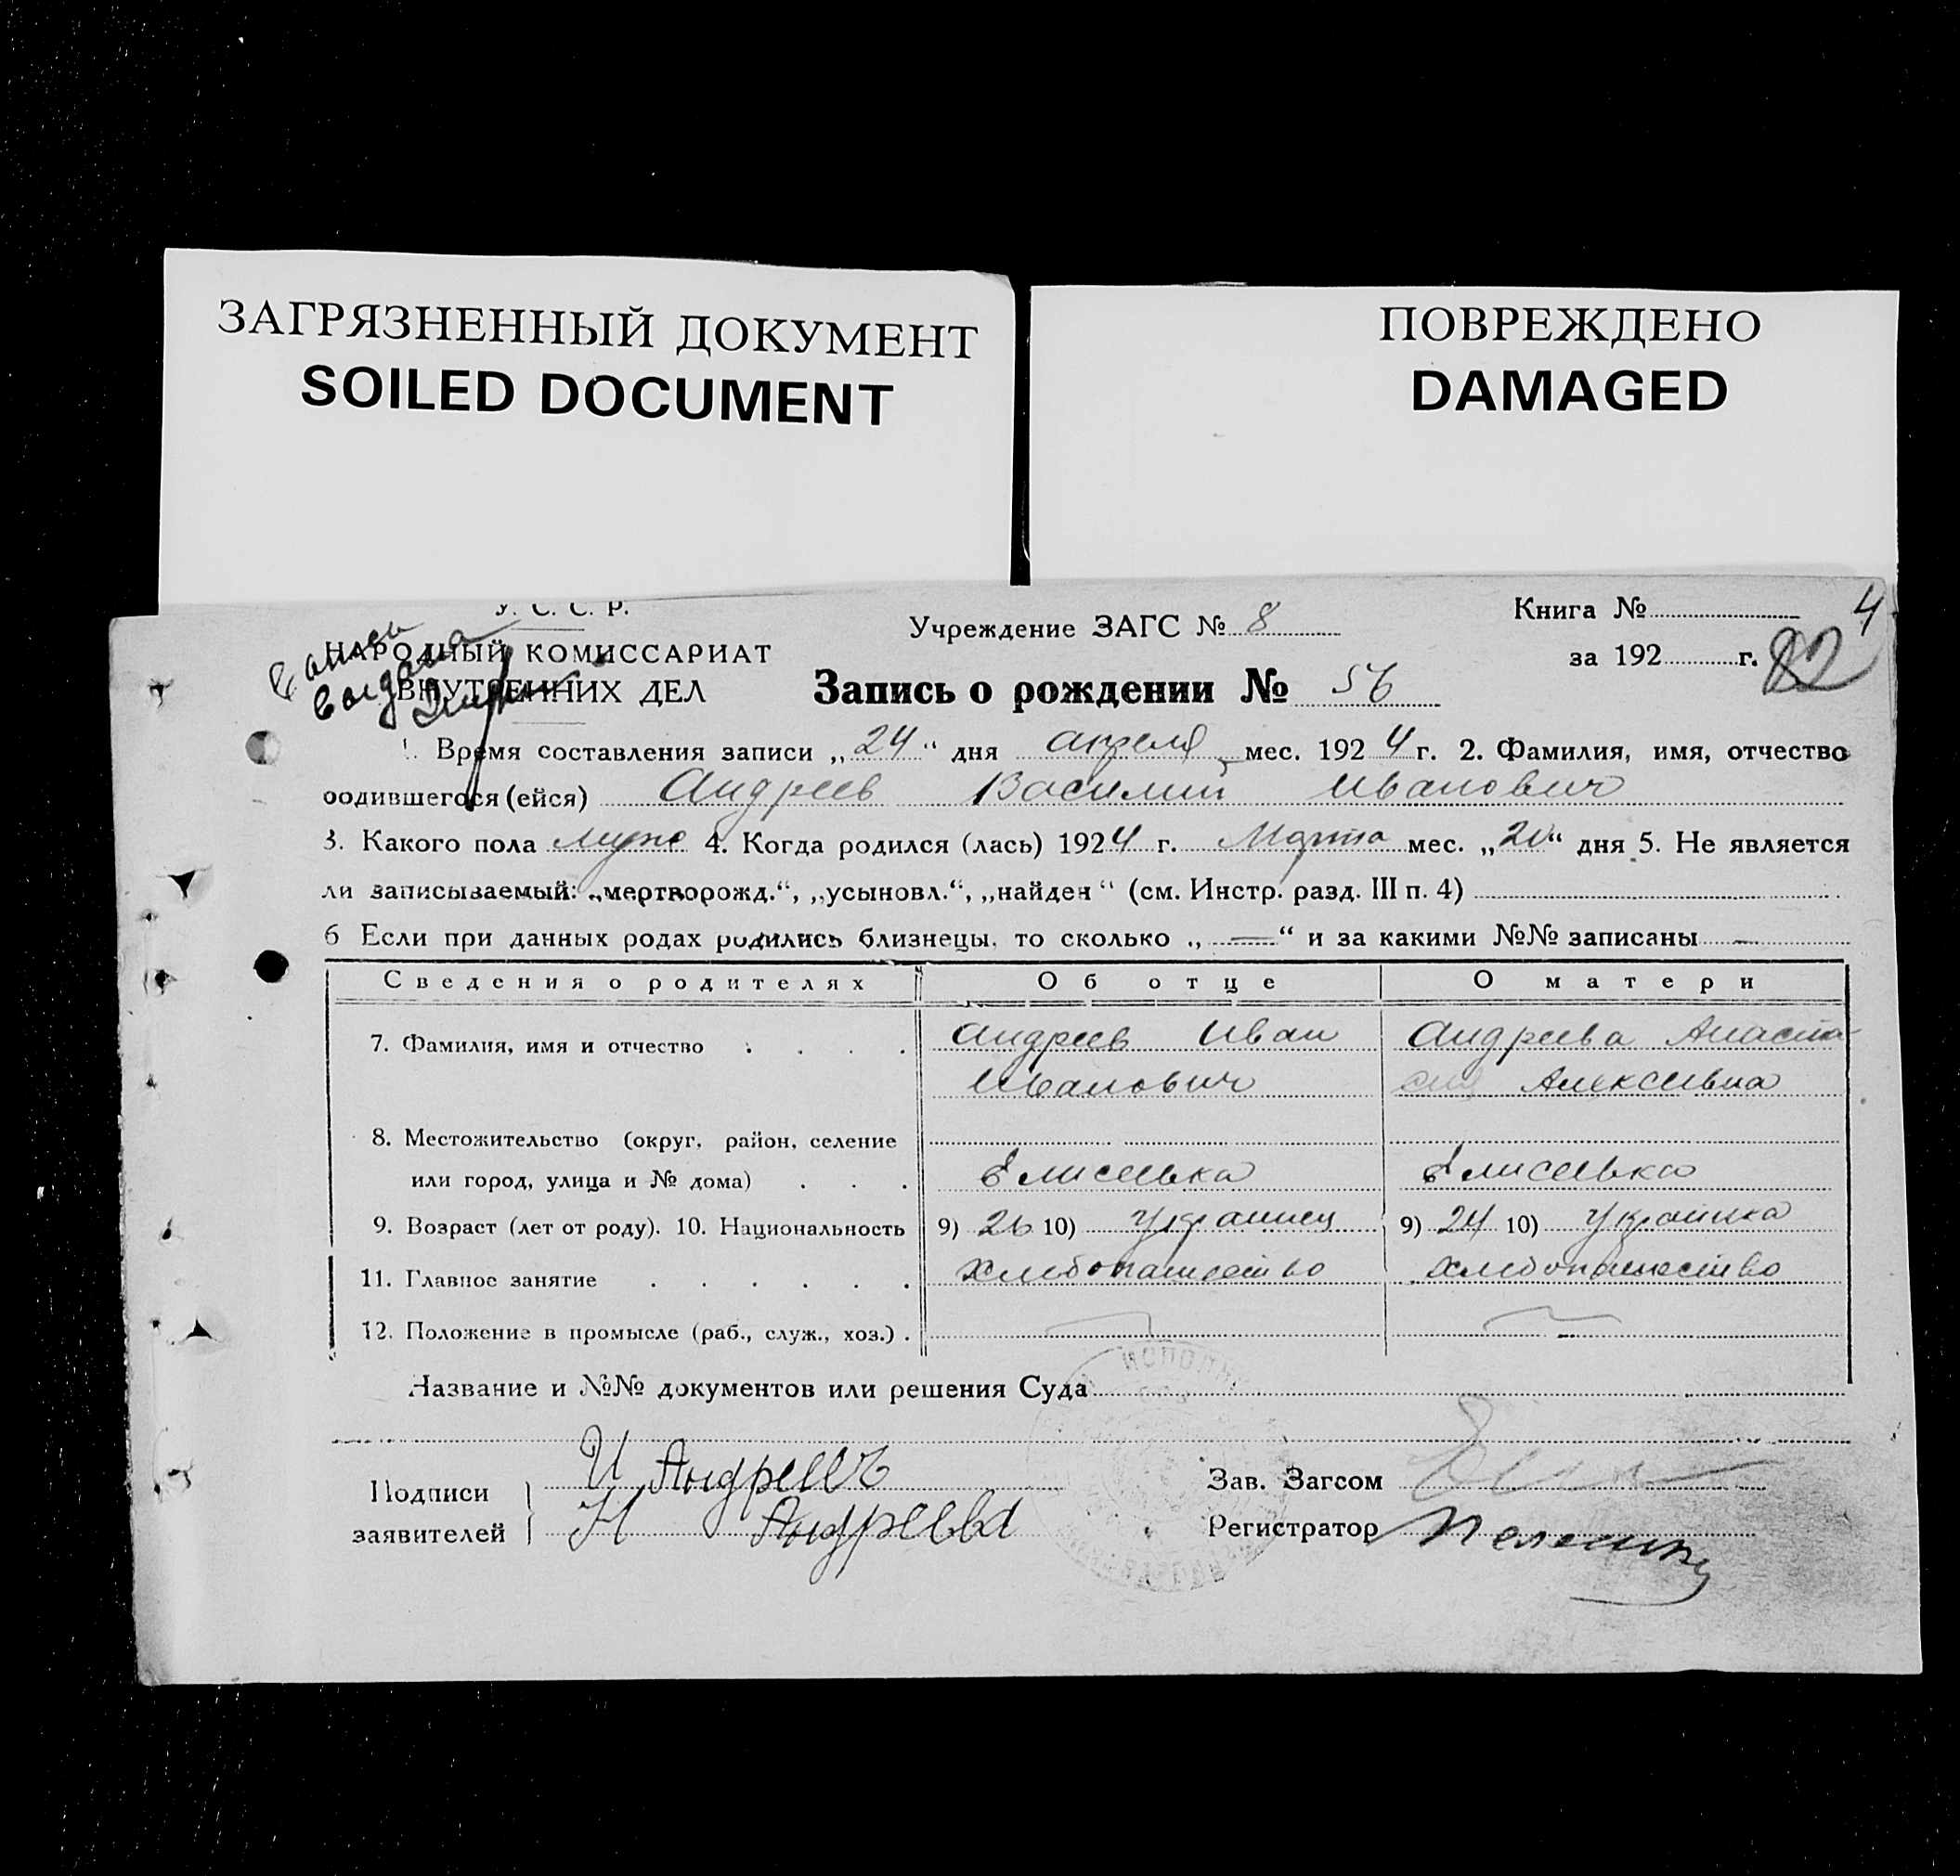 ЗАГРЯЗНЕННЫЙ ДОКУМЕНТ
SOILED DOCUMENT
ПОВРЕЖДЕНО
DAMAGED
У. С. С. Р.
НАРОДНЫЙ КОМИССАРИАТ
ВНУТРЕННИХ ДЕЛ
Учреждение ЗАГС № 8
Книга № 4
за 192 г. 82
Запись о рождении № 56
1. Время составления записи „24“ дня апреля мес. 1924 г. 2. Фамилия, имя, отчество
родившегося (ейся) Андреев Василий Иванович
3. Какого пола муж 4. Когда родился (лась) 1924 г. Марта мес. „20“ дня 5. Не является
ли записываемый: „мертворожд.“, „усыновл.“, „найден“ (см. Инстр. разд. III п. 4)
6 Если при данных родах родились близнецы, то сколько „—“ и за какими №№ записаны —
Сведения о родителях Об отце О матери
7. Фамилия, имя и отчество Андреев Иван Андреева Анаста
Иванович сия Алексевна
8. Местожительство (округ, район, селение
или город, улица и № дома) Елисеевка Елисеевка
9. Возраст (лет от роду). 10. Национальность 9) 26 10) Украинец 9) 24 10) Украинка
11. Главное занятие Хлебопашество Хлебопашество
12. Положение в промысле (раб., служ., хоз.)
Название и №№ документов или решения Суда
Подписи
заявителей
И Андреевъ
Н Андреева
Зав. Загсом
Регистратор